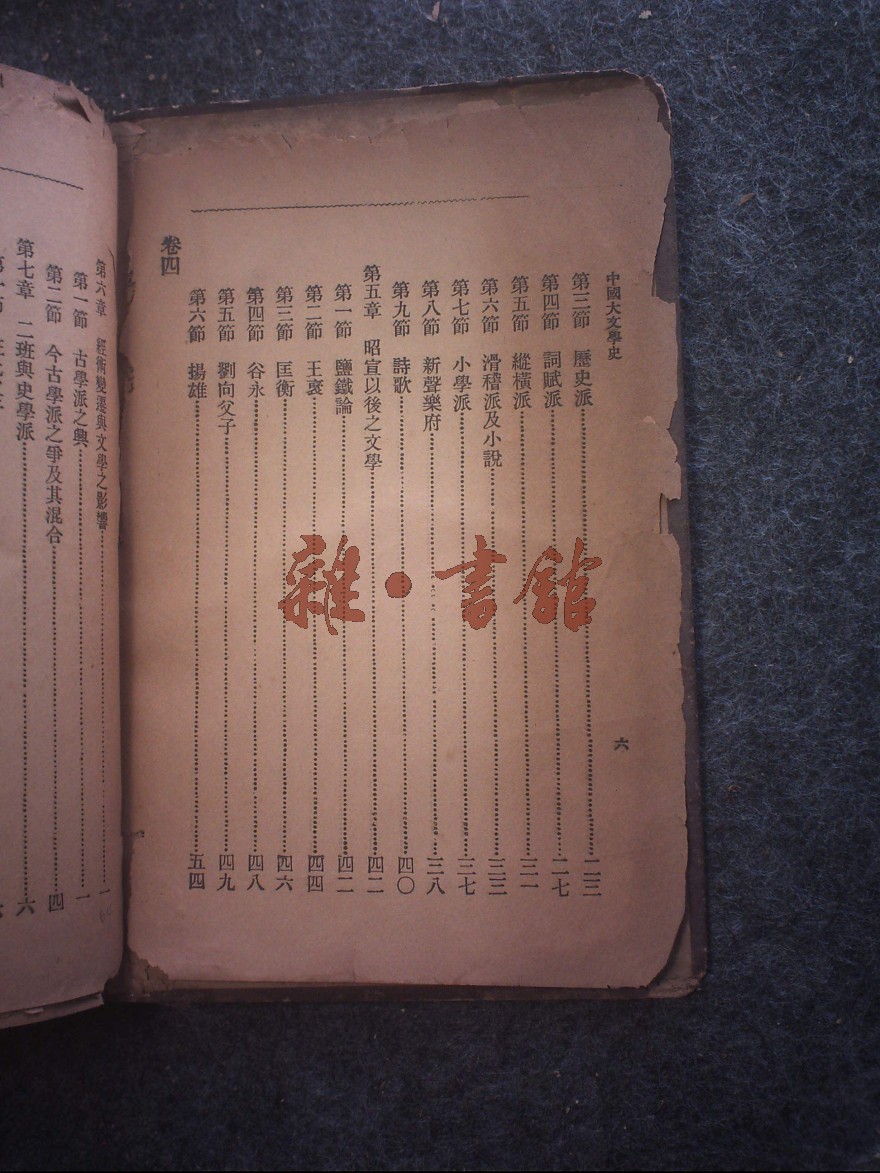 中國大文學史
六
第三節 歷史派 二三
第四節 詞賦派 二七
第五節 縱橫派 三一
第六節 滑稽派及小說 三三
第七節 小學派 三七
第八節 新聲樂府 三八
第九節 詩歌 四〇
第五章 昭宣以後之文學 四二
第一節 鹽鐵論 四二
第二節 王褒 四四
第三節 匡衡 四六
第四節 谷永 四八
第五節 劉向父子 四九
第六節 揚雄 五四
卷四
第六章 經術變遷與文學之影響 一
第一節 古學派之興 一
第二節 今古學派之爭及其混合 四
第七章 二班與史學派 六
雜·書館